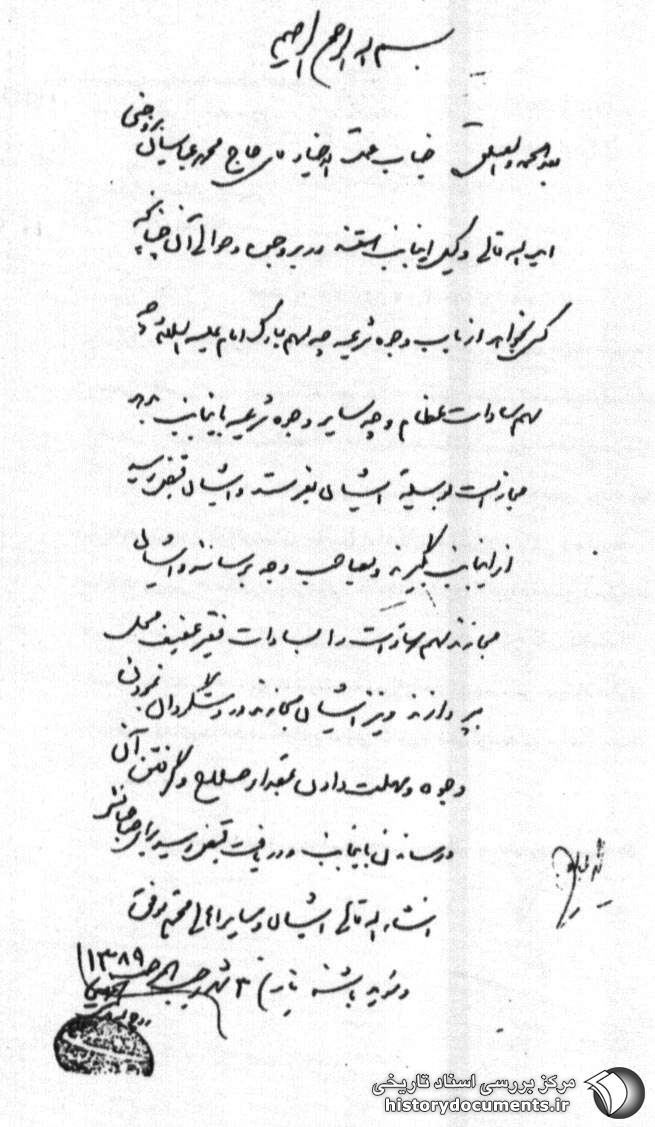 بسم الله الرحمن الرحیم
بعد الحمد والصلوة جناب عمدة الاخیار آقای حاج محمد عباسیان بروجنی
ایده الله تعالی وکیل اینجانب هستند در بروجن و حوالی آن چنانچه
کسی بخواهد از باب وجوه شرعیه چه سهم مبارک امام علیه السلام و چه
سهم سادات عظام و چه سایر وجوه شرعیه باینجانب بدهد
مجاز است بوسیله ایشان بفرستد و ایشان قبض رسید
از اینجانب بگیرند و بصاحب وجه برسانند و ایشان
مجازند سهم سادات را بسادات فقیر عفیف محل
بپردازند و نیز ایشان مجازند در دستگردان نمودن
وجوه و مهلت دادن بمقدار صلاح و گرفتن آن
و رساندن باینجانب و دریافت قبض رسید برای صاحبانش
انشاء الله تعالی ایشان و سایر اهالی محترم موفق
و مؤید باشند بتاریخ ۳ شهر رجب المرجب ۱۳۸۹
مرکز بررسی اسناد تاریخی
historydocuments.ir